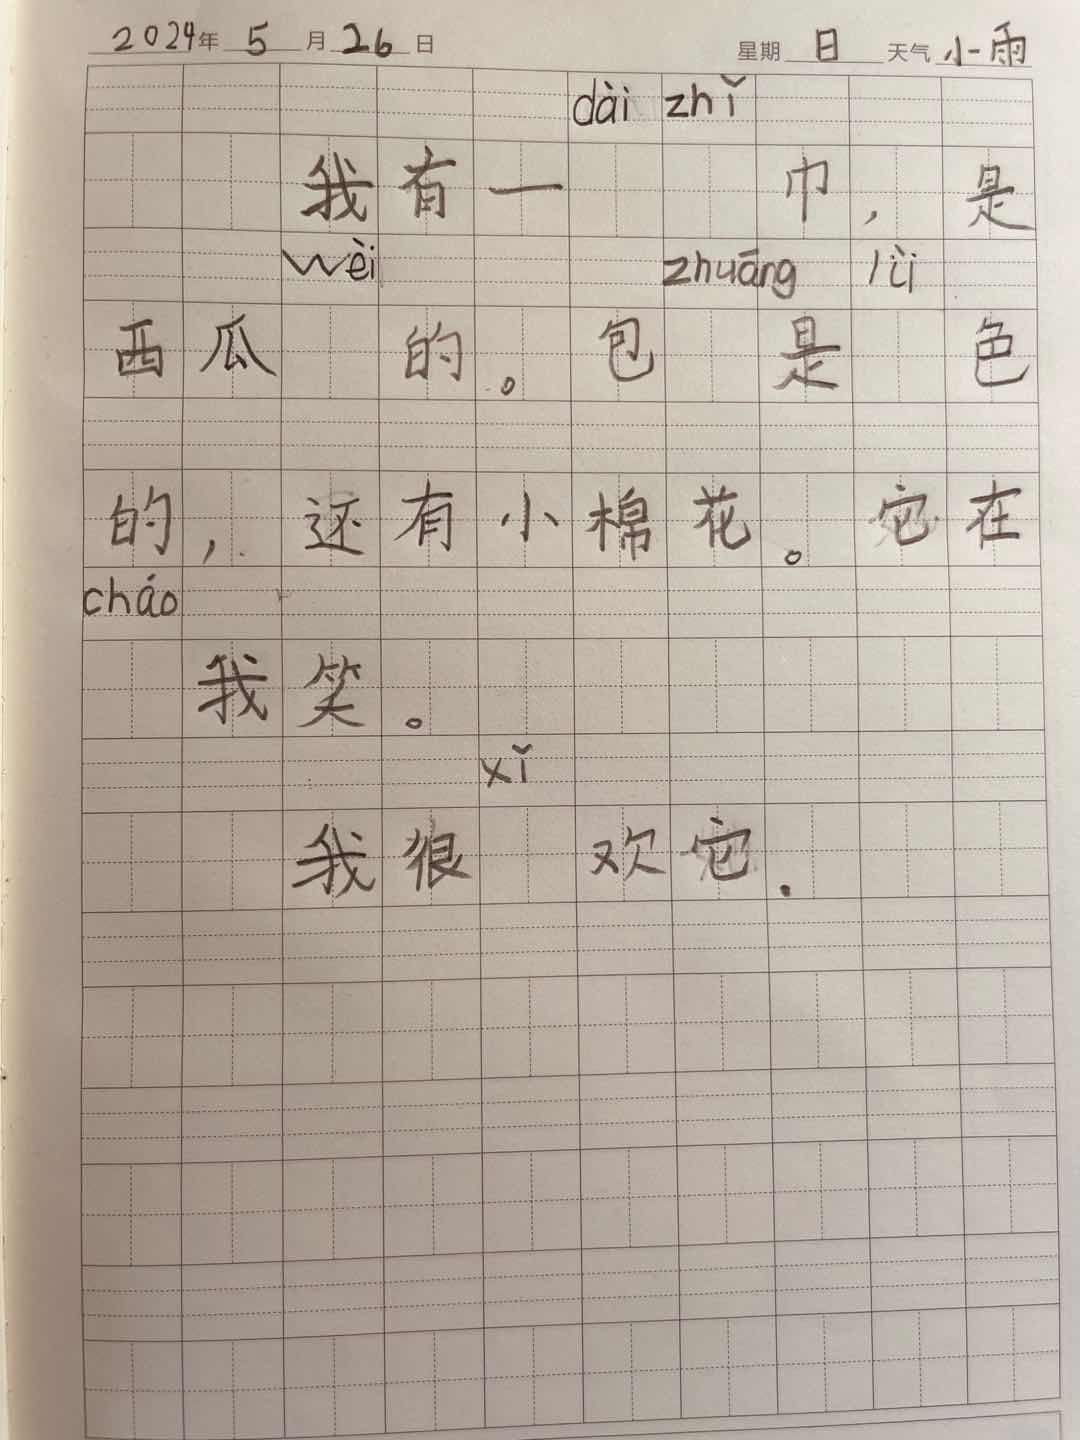 2024年 5 月 26 日 星期 日 天气 小雨
dài zhǐ
我有一 巾，是
wèi zhuāng lǜ
西瓜 的。包 是 色
的，还有小棉花。它在
cháo
我笑。
xǐ
我很 欢它.